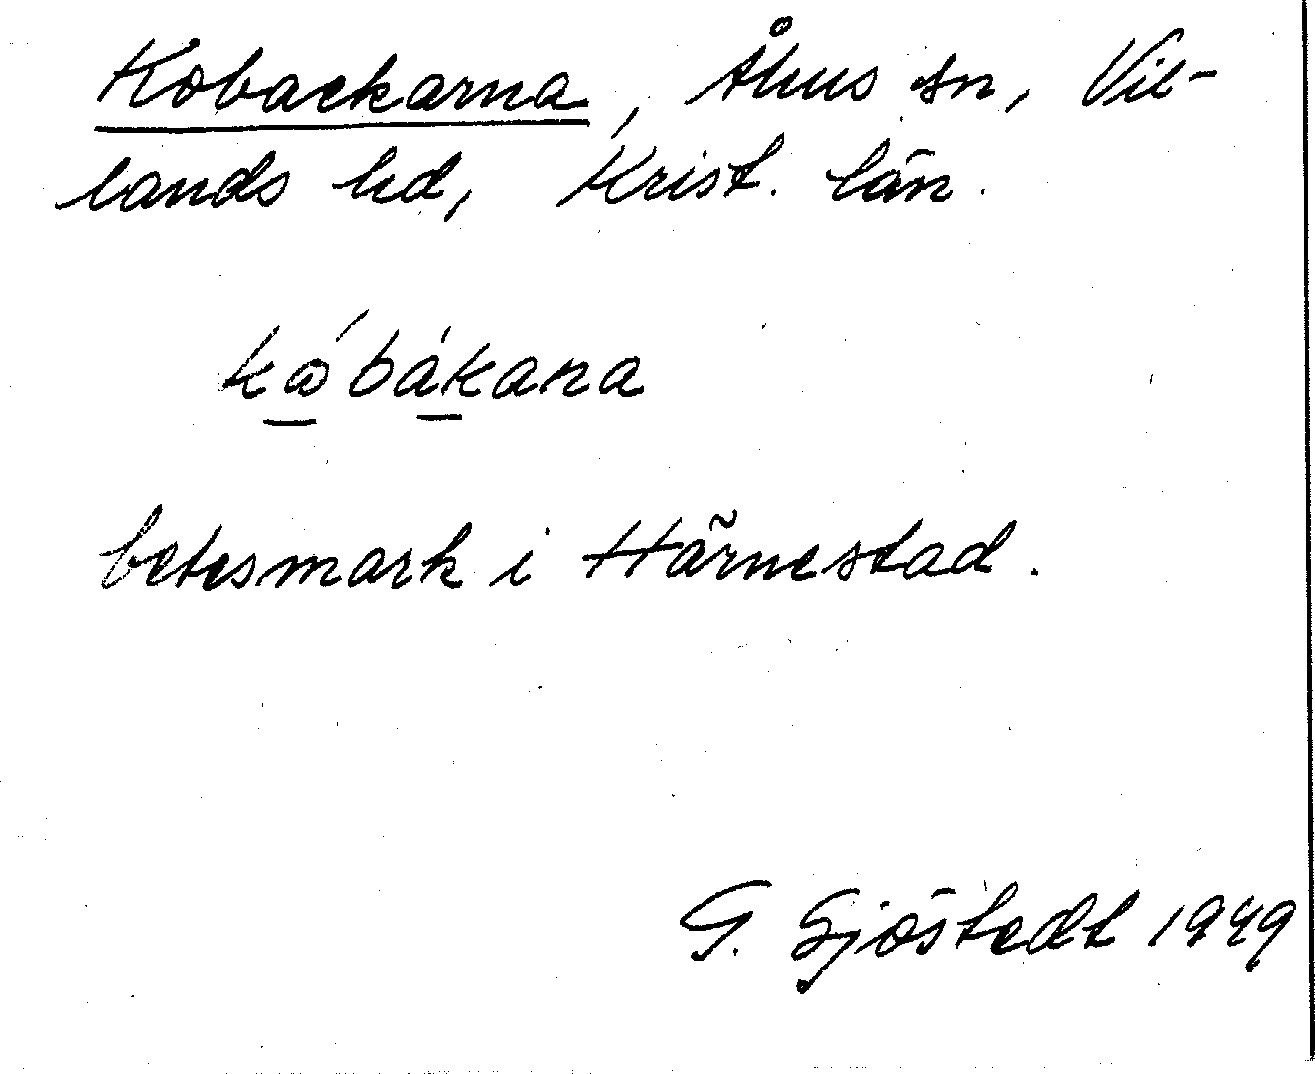 Kobackarna, Åhus sn, Vil-
lands hd, Krist. län.
kǻbákana
betesmark i Härnestad.
G. Sjöstedt 1949